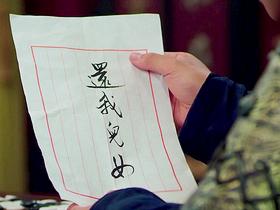 還我兒女